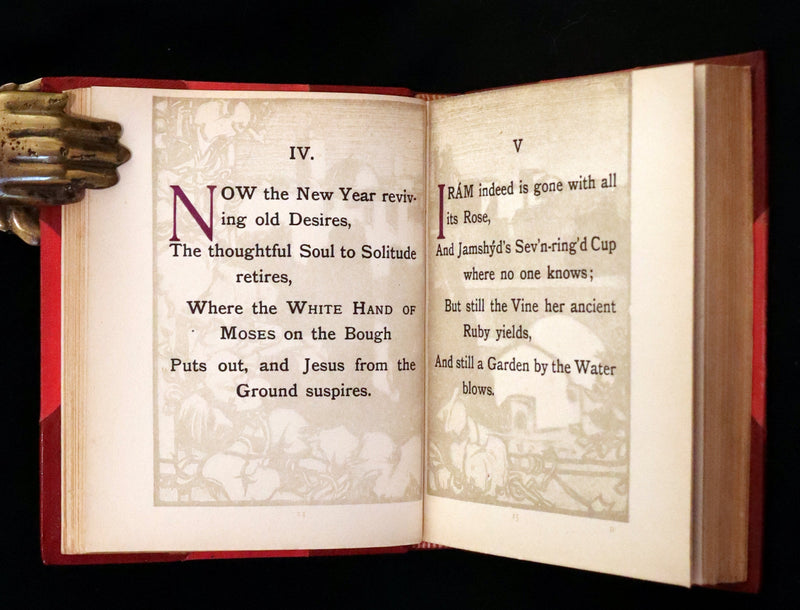 IV.
NOW the New Year reviv-
ing old Desires,
The thoughtful Soul to Solitude
retires,
Where the WHITE HAND OF
MOSES on the Bough
Puts out, and Jesus from the
Ground suspires.
V
IRÁM indeed is gone with all
its Rose,
And Jamshýd's Sev'n-ring'd Cup
where no one knows;
But still the Vine her ancient
Ruby yields,
And still a Garden by the Water
blows.